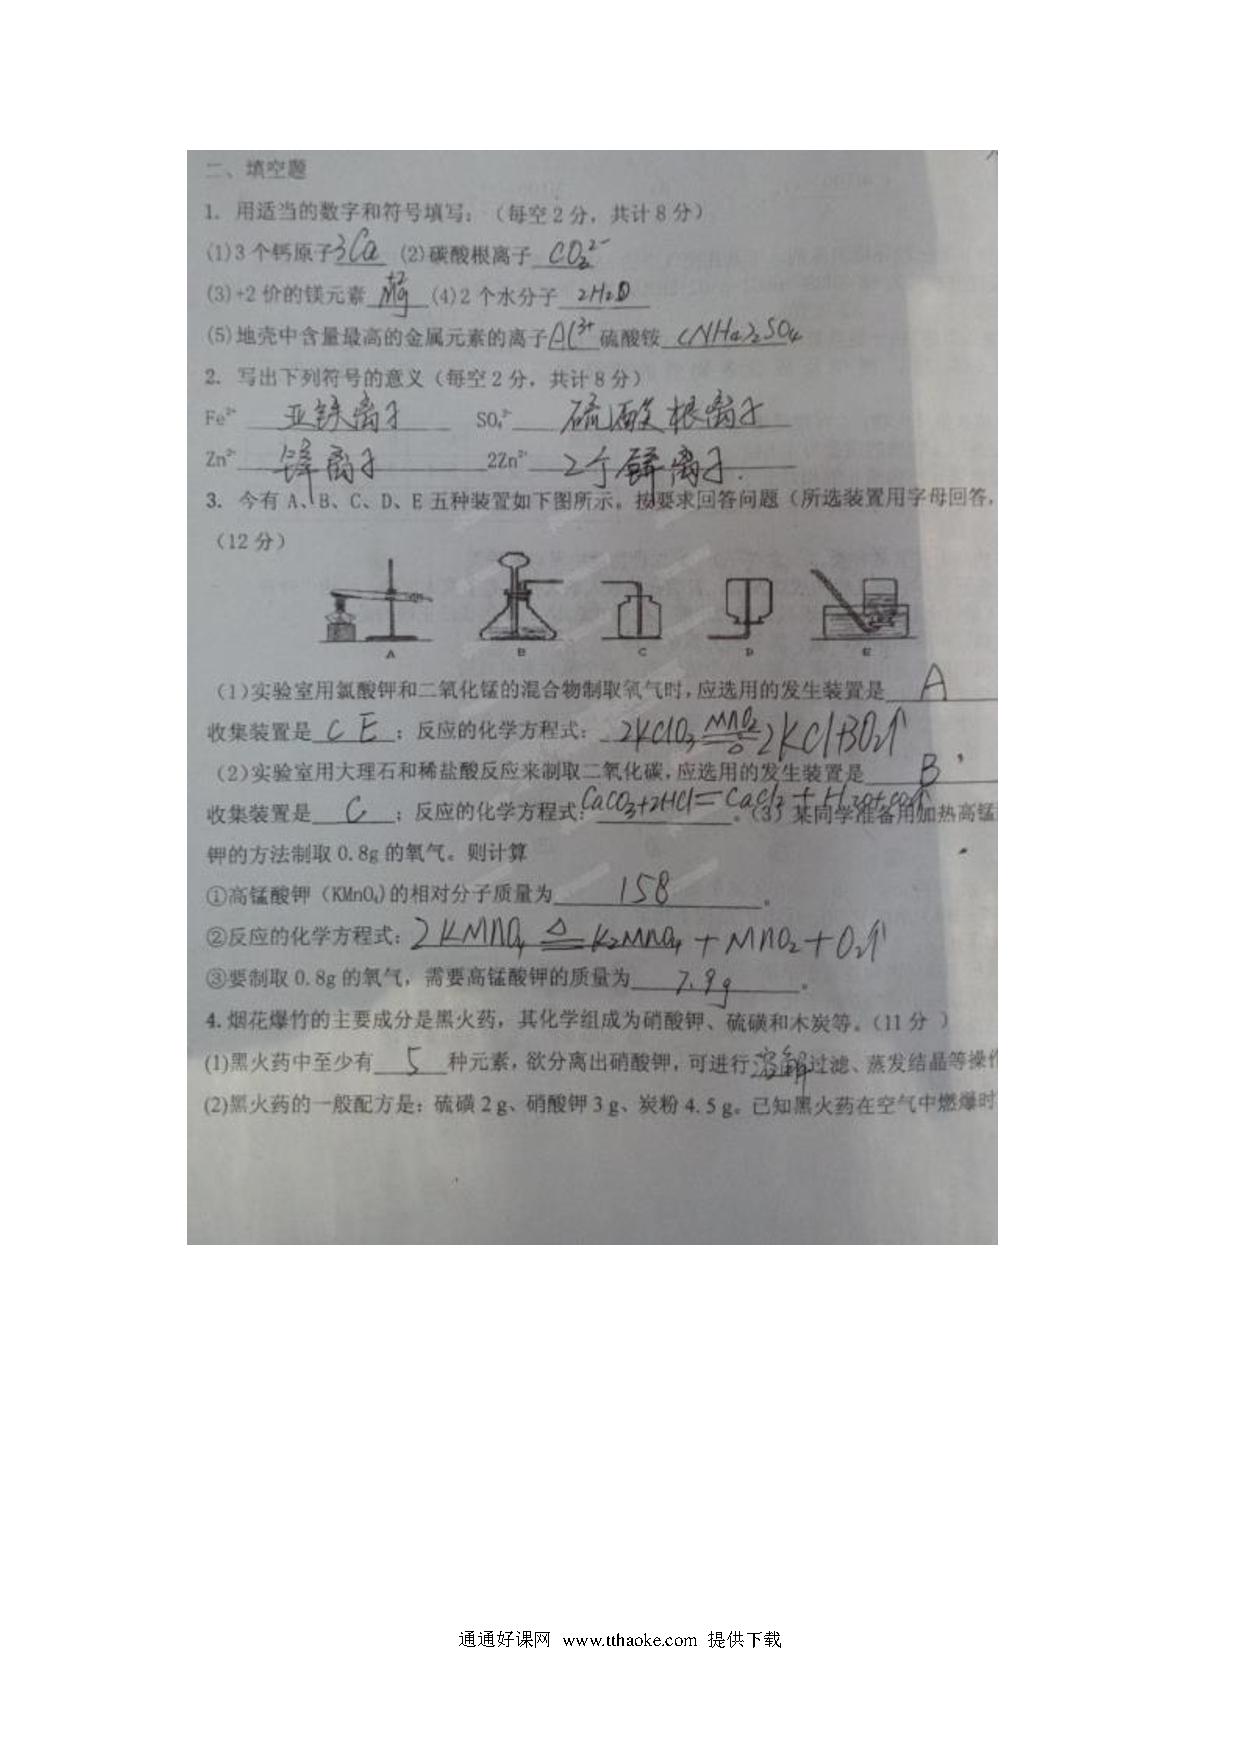 二、填空题
1. 用适当的数字和符号填写：（每空2分，共计8分）
(1)3个钙原子3Ca (2)碳酸根离子 CO₃²⁻
(3)+2价的镁元素 Mg +2 (4)2个水分子 2H₂O
(5)地壳中含量最高的金属元素的离子Al³⁺ 硫酸铵 (NH₄)₂SO₄
2. 写出下列符号的意义（每空2分，共计8分）
Fe²⁺ 亚铁离子 SO₄²⁻ 硫酸根离子
Zn²⁺ 锌离子 2Zn²⁺ 2个锌离子.
3. 今有A、B、C、D、E五种装置如下图所示。按要求回答问题（所选装置用字母回答,
（12分）
A B C D E
(1)实验室用氯酸钾和二氧化锰的混合物制取氧气时,应选用的发生装置是 A
收集装置是 C E ；反应的化学方程式： 2KClO₃ MnO₂ == △ 2KCl+3O₂↑
(2)实验室用大理石和稀盐酸反应来制取二氧化碳,应选用的发生装置是 B
收集装置是 C ；反应的化学方程式:CaCO₃+2HCl=CaCl₂+H₂O+CO₂↑。(3) 某同学准备用加热高锰
钾的方法制取0.8g的氧气。则计算
①高锰酸钾（KMnO₄)的相对分子质量为 158 。
②反应的化学方程式：2KMnO₄ △ == K₂MnO₄+MnO₂+O₂↑
③要制取0.8g的氧气，需要高锰酸钾的质量为 7.9g 。
4.烟花爆竹的主要成分是黑火药，其化学组成为硝酸钾、硫磺和木炭等。(11分 ）
(1)黑火药中至少有 5 种元素，欲分离出硝酸钾，可进行溶解过滤、蒸发结晶等操作
(2)黑火药的一般配方是：硫磺2g、硝酸钾3g、炭粉4.5g。已知黑火药在空气中燃爆时
通通好课网 www.tthaoke.com 提供下载